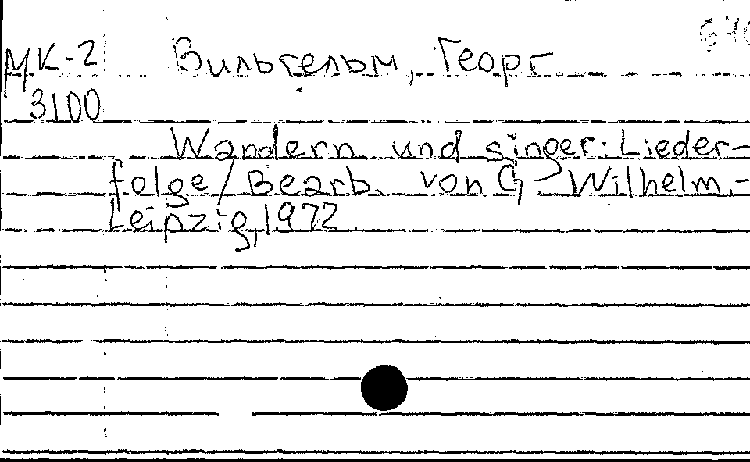 МК-2 Вильгельм, Георг
3100
Wandern und singen. Lieder-
folge / Bearb. von G. Wilhelm. -
Leipzig, 1972